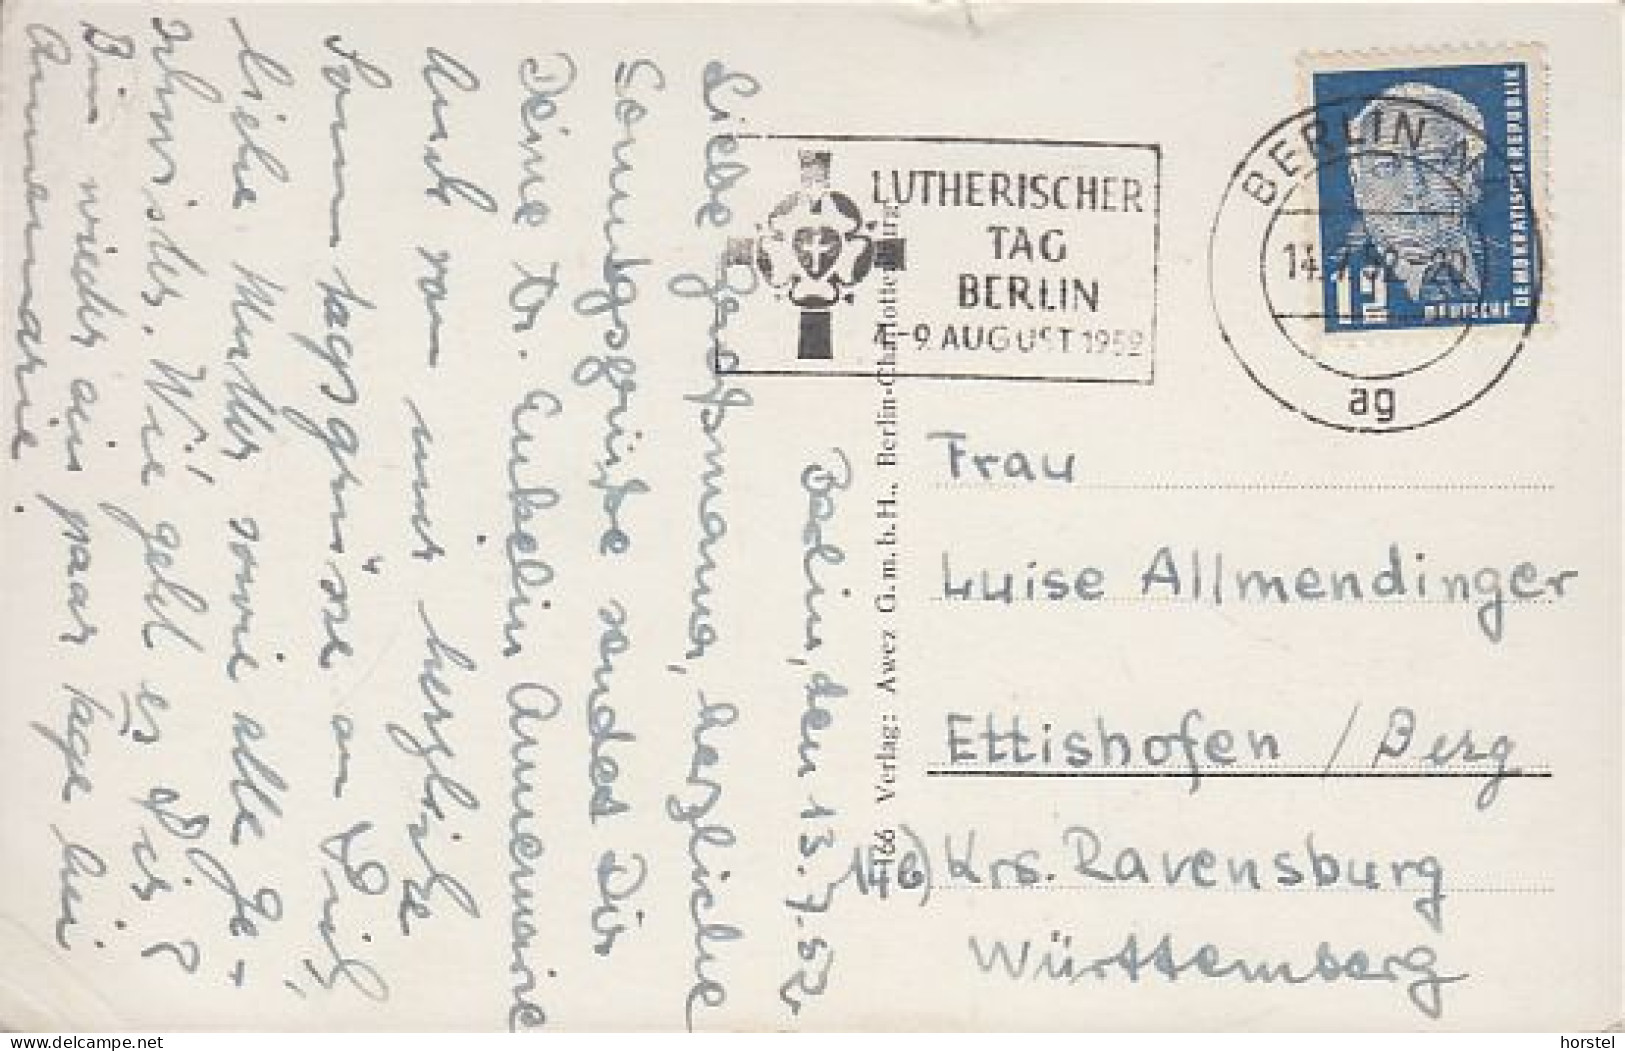 Berlin, den 13.7.52
Liebe Großmama, herzliche
Sonntagsgrüße sendet Dir
Deine Dr. Enkelin Annemarie
Auch von mir herzliche
Sonntagsgrüsse an Dich,
liebe Mutter sowie alle Ge-
schwister. Wie geht es Dir?
Bin wieder ein paar Tage bei
Annemarie.
LUTHERISCHER
TAG
BERLIN
-9. AUGUST 1952
BERLIN N
14.7.52-20
ag
12
DEUTSCHE
DEMOKRATISCHE REPUBLIK
Verlag: Awez G.m.b.H., Berlin-Charlottenburg
Frau
Luise Allmendinger
Ettishofen / Berg
14b) Krs. Ravensburg
Württemberg
www.delcampe.net
horstel